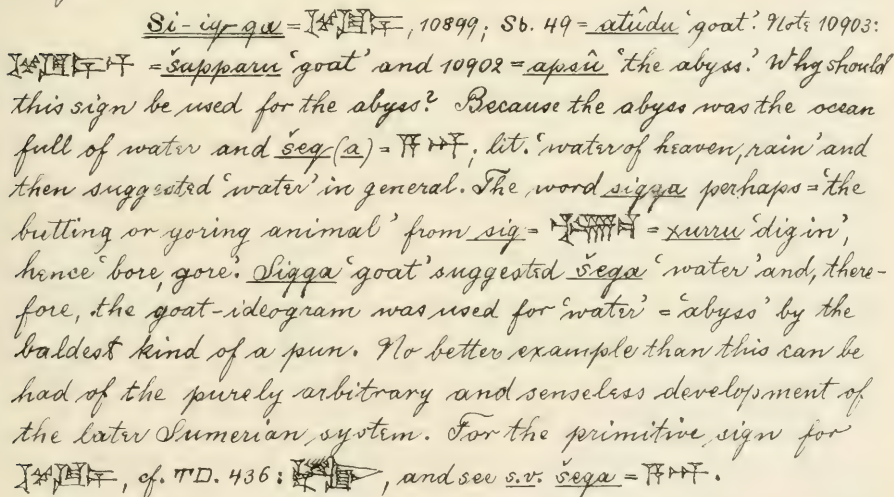 Si-iq-qa = , 10899; Sb. 49 = atûdu 'goat'. Note 10903:
= šupparu 'goat' and 10902 = apsû 'the abyss.' Why should
this sign be used for the abyss? Because the abyss was the ocean
full of water and šeg(a) = 𒀀𒀭; lit. 'water of heaven, rain' and
then suggested 'water' in general. The word sigga perhaps = 'the
butting or goring animal' from sig = = xurru 'dig in',
hence 'bore, gore'. Sigga 'goat' suggested šega 'water' and, there-
fore, the goat-ideogram was used for 'water' = 'abyss' by the
baldest kind of a pun. No better example than this can be
had of the purely arbitrary and senseless development of
the later Sumerian system. For the primitive sign for
, cf. TD. 436: , and see s.v. šega = 𒀀𒀭.